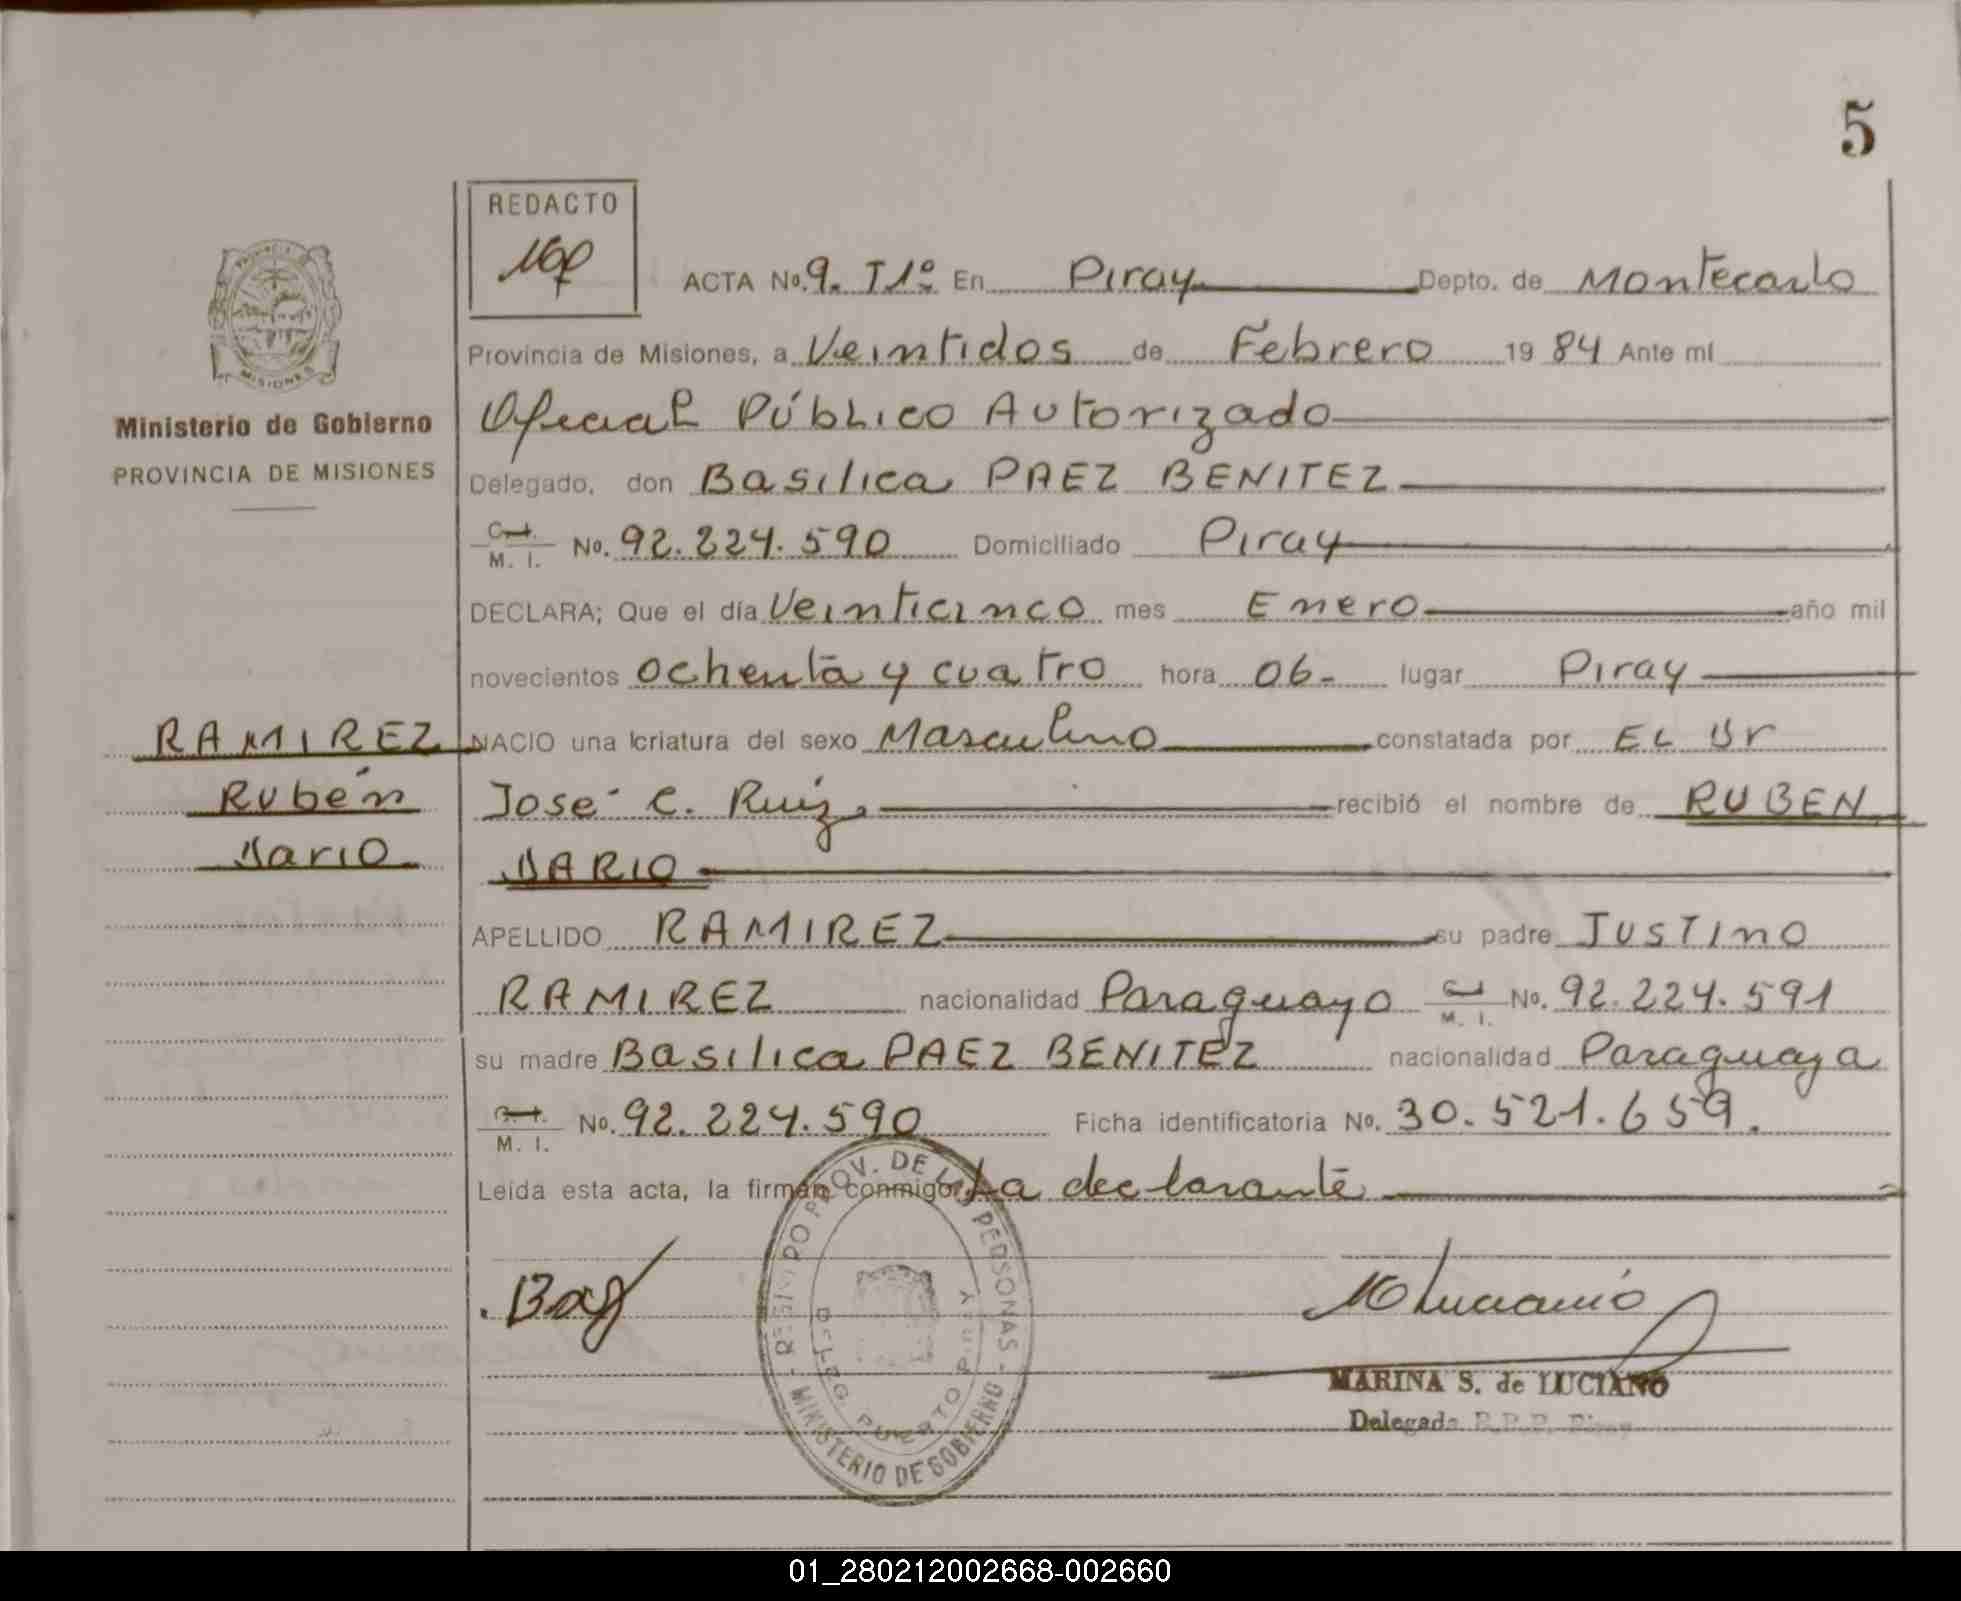 5
REDACTO
ACTA No. 9. T1º En Piray Depto. de Montecarlo
Provincia de Misiones, a Veintidos de Febrero 19 84 Ante mí
Oficial Público Autorizado
Ministerio de Gobierno
PROVINCIA DE MISIONES
Delegado, don Basilica PAEZ BENITEZ
M. I. No. 92.224.590 Domiciliado Piray
DECLARA; Que el día Veinticinco mes Enero año mil
novecientos ochenta y cuatro hora 06- lugar Piray
RAMIREZ
Rubén
Dario
NACIO una criatura del sexo Masculino constatada por EL Dr
José C. Ruiz recibió el nombre de RUBEN
DARIO
APELLIDO RAMIREZ su padre JUSTINO
RAMIREZ nacionalidad Paraguayo M. I. No. 92.224.591
su madre Basilica PAEZ BENITEZ nacionalidad Paraguaya
M. I. No. 92.224.590 Ficha identificatoria No. 30.521.659.
Leída esta acta, la firman conmigo, La declarante
REGISTRO PROV. DE LAS PERSONAS
DELEG. PUERTO PIRAY
MINISTERIO DE GOBIERNO
MLuciano
MARINA S. de LUCIANO
Delegada R.P.P. Piray
01_280212002668-002660